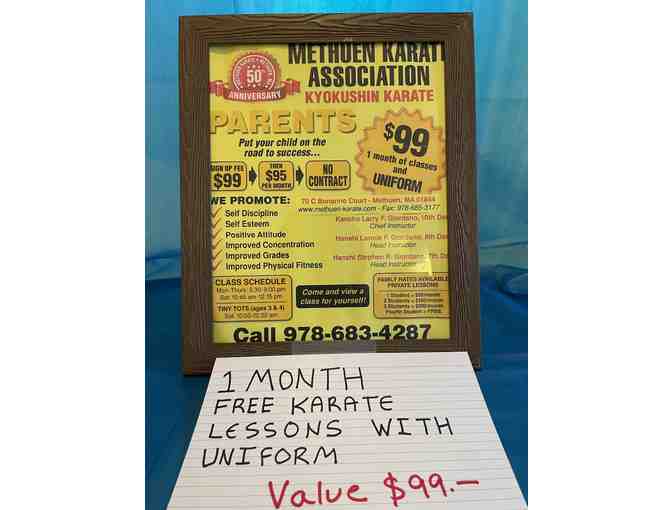 METHUEN KARAT
ASSOCIATION
KYOKUSHIN KARATE
50TH
ANNIVERSARY
PARENTS
Put your child on the
road to success...
$99
1 month of classes
and
UNIFORM
SIGN UP FEE
$99
THEN
$95
PER MONTH
NO
CONTRACT
WE PROMOTE:
Self Discipline
Self Esteem
Positive Attitude
Improved Concentration
Improved Grades
Improved Physical Fitness
70 C Bonanno Court - Methuen, MA 01844
www.methuen-karate.com - Fax: 978-685-3177
Kancho Larry F. Giordano, 10th Da
Chief Instructor
Hanshi Lannie F. Giordano, 8th Da
Head Instructor
Hanshi Stephen R. Giordano, 7th Da
Head Instructor
CLASS SCHEDULE
Mon-Thurs: 5:30-9:00 pm
TINY TOTS (ages 3 & 4)
Come and view a
class for yourself!
FAMILY RATES AVAILABLE
PRIVATE LESSONS
Call 978-683-4287
1 MONTH
FREE KARATE
LESSONS WITH
UNIFORM
Value $99.-